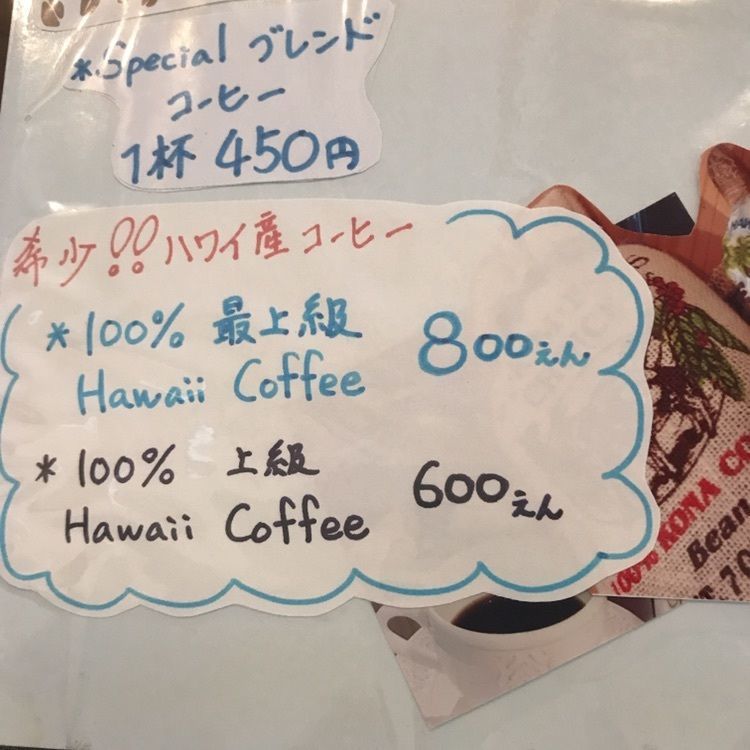 *Special ブレンド
コーヒー
1杯 450円
希少!! ハワイ産コーヒー
*100% 最上級 800えん
Hawaii Coffee
*100% 上級 600えん
Hawaii Coffee
100% KONA CO
Bean